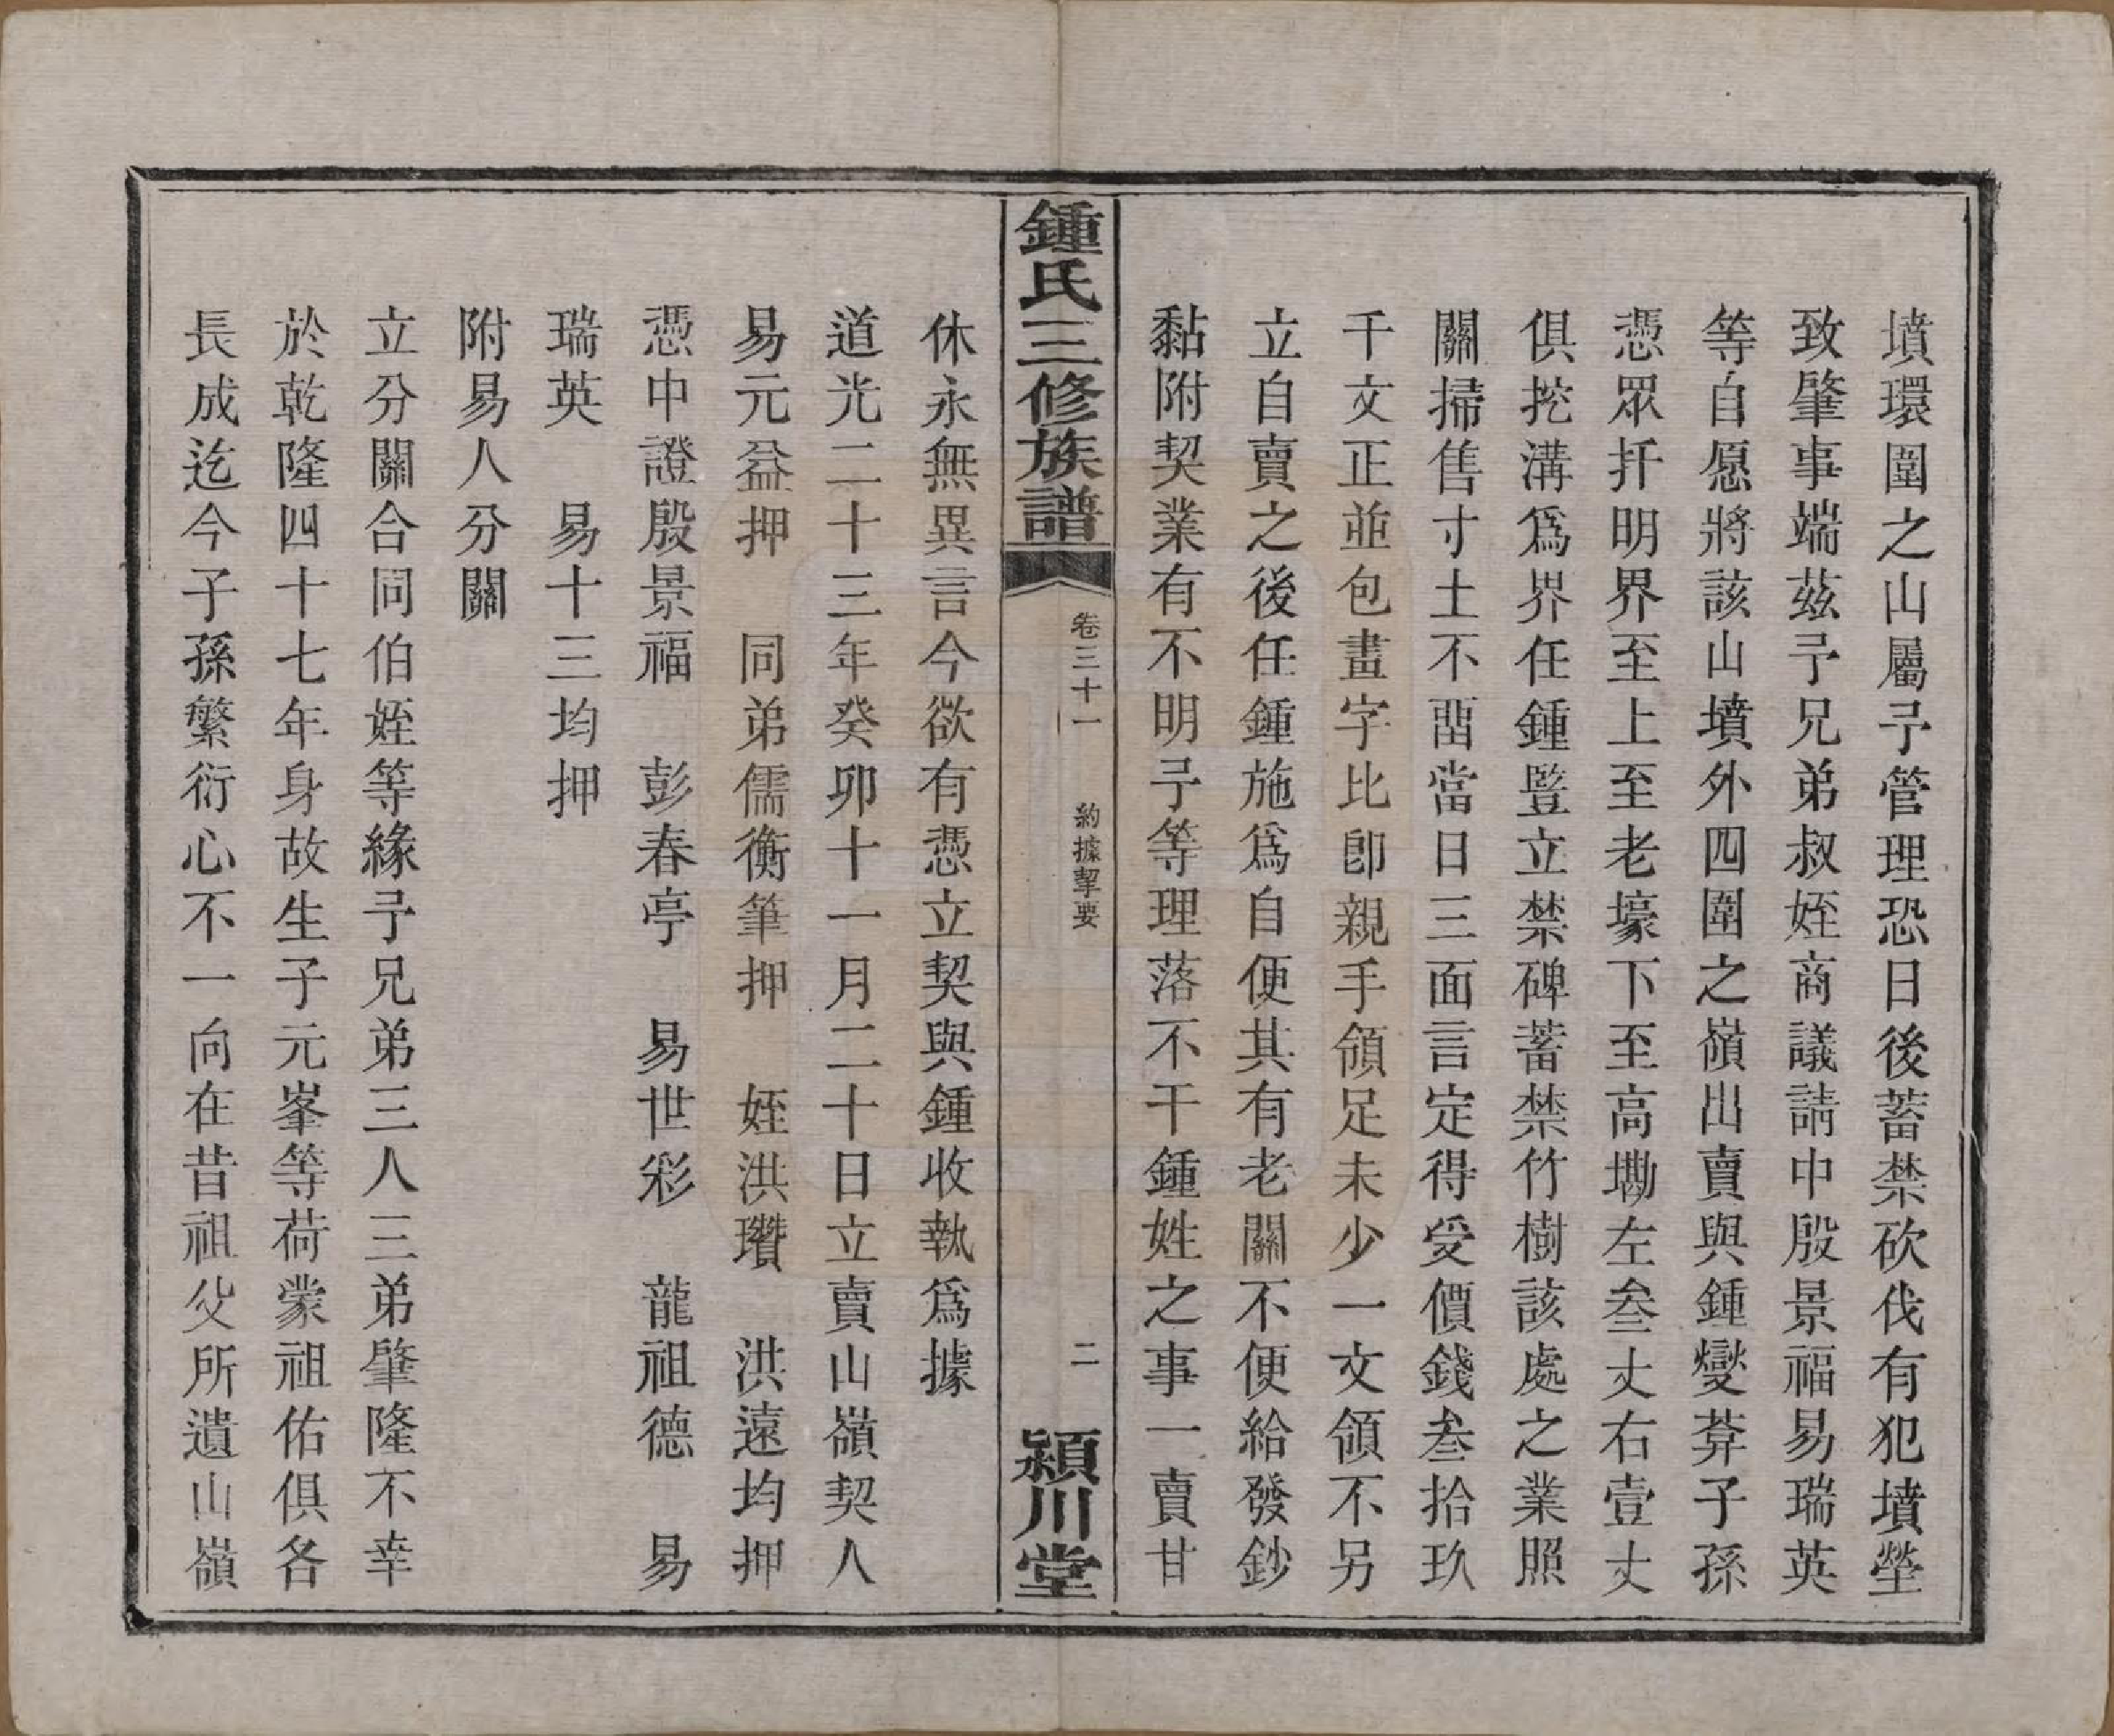 墳環圍之山屬予管理恐日後蓄禁砍伐有犯墳塋
致肇事端茲予兄弟叔姪商議請中殷景福易瑞英
等自愿將該山墳外四圍之嶺出賣與鍾燮莽子孫
憑眾扦明界至上至老壕下至高墈左叁丈右壹丈
俱挖溝爲界任鍾豎立禁碑蓄禁竹樹該處之業照
關掃售寸土不畱當日三面言定得受價錢叁拾玖
千文正並包畫字比卽親手領足未少一文領不另
立自賣之後任鍾施爲自便其有老關不便給發鈔
黏附契業有不明予等理落不干鍾姓之事一賣甘
鍾氏三修族譜 卷三十一 約據挈要 二 潁川堂
休永無異言今欲有憑立契與鍾收執爲據
道光二十三年癸卯十一月二十日立賣山嶺契人
易元益押 同弟儒衡筆押 姪洪瓚 洪遠均押
憑中證殷景福 彭春亭 易世彩 龍祖德 易
瑞英 易十三均押
附易人分關
立分關合同伯姪等緣予兄弟三人三弟肇隆不幸
於乾隆四十七年身故生子元峯等荷蒙祖佑俱各
長成迄今子孫繁衍心不一向在昔祖父所遺山嶺